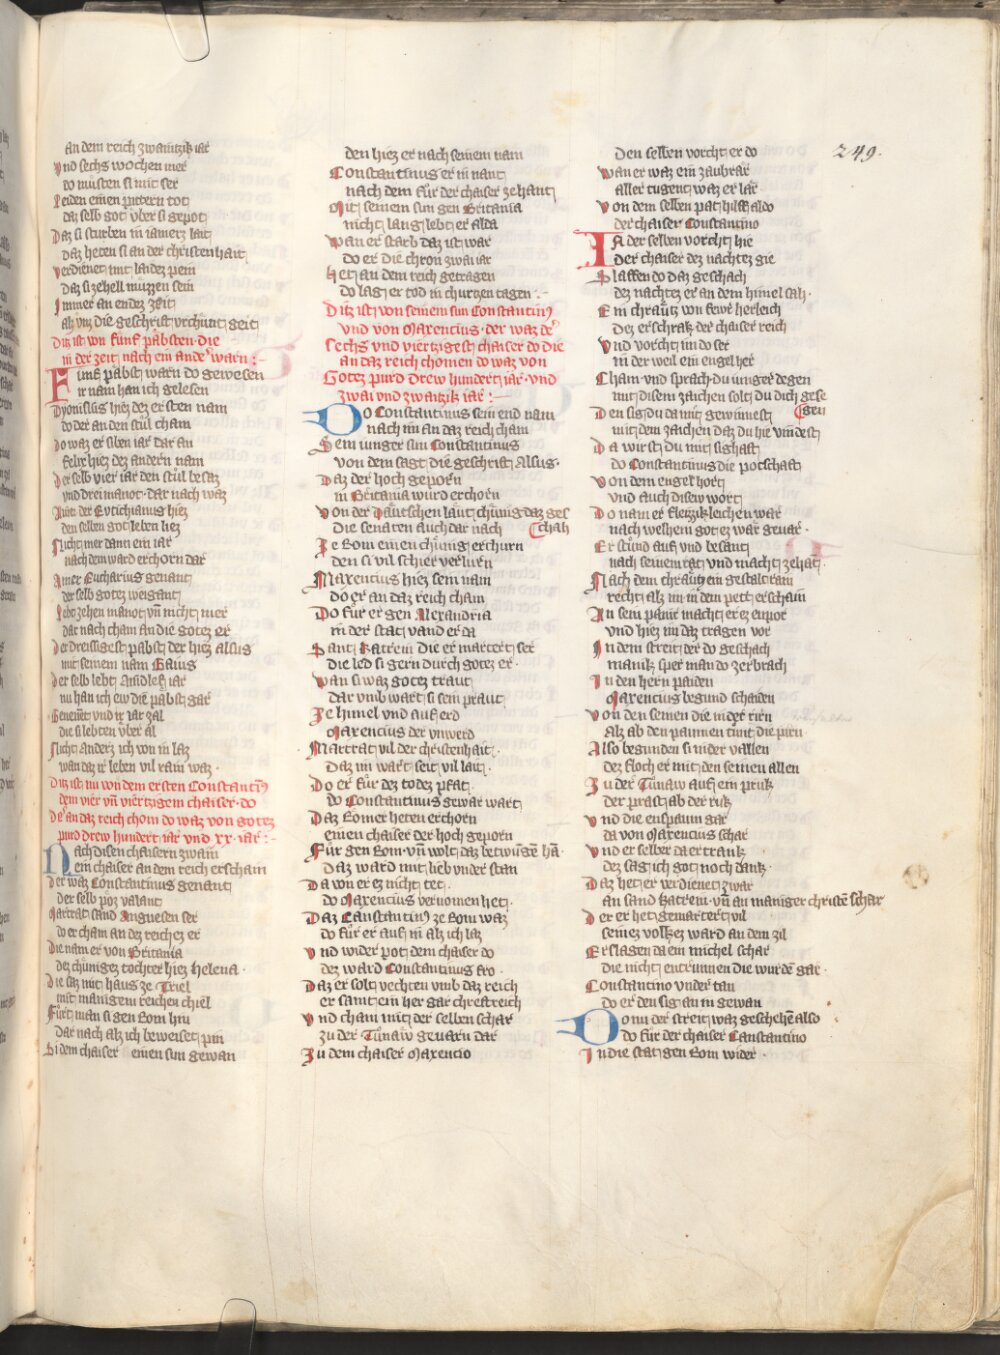 an dem reich zwaintzik iar
Vnd sechs wochen mer
do musten si mit ser
Leiden einen pittern tot
daz selb got vber si gepot
Daz si sturben in iamers lait
daz heten si an der christenhait
Verdienet mit laidez pein
Daz si ze hell muzzen sein
Immer an endez zeit
als vns die geschrift vrchunt geit
Ditz ist von funf pabsten die
in der zeit nach ein ander warn :
Funf pabst warn do gewesen
ir nam han ich gelesen
Dyonisius hiez dez ersten nam
do der an den stul cham
Do waz er siben iar dar an
felix hiez dez andern nam
Der selb vier iar den stul besaz
vnd drei manot dar nach waz
Ainer der Euticianus hiez
den selben got leben liez
Nicht mer dann ein iar
nach dem ward erchorn dar
Ainer Eucharius genant
der selb gotez weigant
Lebt zehen manot vn nicht mer
dar nach cham an die gotez er
Der dreissigest pabst der hiez alsus
mit seinem nam Gaius
Der selb lebt aindlef iar
nu han ich ew die pabst gar
Genenet vnd ir iar zal
die si lebten vber al
Nicht anderz ich von in laz
wan daz ir leben vil rain waz
Ditz ist nu von dem ersten Constantin9
dem vier vn viertzigem chaiser do
Der an daz reich chom do waz von gotez
purd drew hundert iar vnd xx iar :
Nach disen chaisern zwain
ein chaiser an dem reich erschain
Der waz Constantinus genant
der selb poz valant
Martrat sand Angnesen ser
do er cham an dez reichez er
Die nam er von Britania
dez chunigez tochter hiez helena
Die saz mit haus ze Triel
mit manigem reichen chiel
Furt man si gen Rom hin
dar nach als ich beweiset pin
Bi dem chaiser einen sun gewan
den hiez er nach seinem nam
Constantinus er in nant
nach dem fur der chaiser ze hant
Mit seinem sun gen Britania
nicht lang lebt er alda
Wan er starb daz ist war
do er die chron zwai iar
Het an dem reich getragen
do lag er tod in churtzen tagen :
Ditz ist von seinem sun Constantin9
vnd von Maxencius der waz der
sechs vnd viertzigest chaiser do die
an daz reich chomen do waz von
Gotez purd drew hundert iar vnd
zwai vnd zwaitzik iar :
Do Constantinus sein end nam
nach im an daz reich cham
Sein iunger sun Constantinus
von dem sagt die geschrift alsus
Daz der hoch geporn
in Britania wurd erchorn
Von der Dautschen laut chunig daz ges
die senaten auch dar nach chah
Ze Rom einen chunig erchurn
den si vil schier verlurn
Maxencius hiez sein nam
do er an daz reich cham
Do fur er gen Alexandria
in der stat vand er da
Sant Katrein die er martert ser
die led si gern durch gotez er
Wan si waz gotez traut
dar vmb wart si sein praut
Ze himel vnd auf erd
Maxencius der vnwerd
Martrat vil der christenhait
Daz im wart seit vil lait
Do er fur dez todez pfat
do Constantinus gewar wart
Daz Romer heten erchorn
einen chaiser der hoch geporn
Fur gen Rom vn wolt daz betwungen han
daz ward mit lieb vnder stan
Da von er ez nicht tet
do Maxencius vernomen het
Daz Constantin9 ze Rom waz
do fur er auf in als ich laz
Vnd wider pot dem chaiser do
dez ward Constantinus fro
Daz er solt vechten vmb daz reich
er samt ein her gar chreftreich
Vnd cham mit der selben schar
zu der Tunaw geuarn dar
Zu dem chaiser Maxencio
Den selben vorcht er do
Wan er waz ein zaubrar
aller tugent waz er lar
Von dem selben pat hilff aldo
der chaiser Constantino
In der selben vorcht hie
der chaiser dez nachtez gie
Slaffen do daz geschach
dez nachtez er an dem himel sah
Ein chrautz von fewr herleich
Dez erschrak der chaiser reich
Vnd vorcht im do ser
in der weil ein engel her
Cham vnd sprach du iunger degen
mit disem zaichen solt du dich gese
Den sig du da mit gewinnest gen
mit dem zaichen daz du hie vindest
Da wirst du mit sighaft
do Constantinus die potschaft
Von dem engel hort
vnd auch disew wort
Do nam er fleizzikleichen war
nach welhem got ez war geuar
Er stund auf vnd besant
nach seinem rat vnd macht zehant
Nach dem chrautz ein gestalt ram
recht als im in dem pett erscham
An sein panir macht er ez enpor
vnd hiez im daz tragen vor
In dem streit der do geschach
manik sper man do zerbrach
Zu den hern paiden
Maxencius begund schaiden
Von den seinen die nider rirn
als ab den paumen tunt die pirn
Also begunden si nider vallen
dez floch er mit den seinen allen
Zu der Tunaw auf ein pruk
der prast ab der ruk
Vnd die enspaum gar
da von Maxencius schar
Vnd er selber da ertrank
dez sag ich got noch dank
Daz het er verdienet zwar
an sand Katrein vn an maniger christen schar
Der er het gemartert vil
seinez volkez ward an dem zil
Erslagen da ein michel schar
die nicht entrunnen die wurden gar
Constantino vnder tan
do er den sig an in gewan
Do nu der streit waz geschehen also
do fur der chaiser Constantino
In die stat gen Rom wider
249.